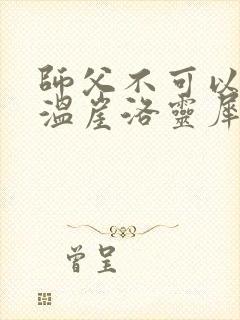 師父不可以
溫崖洛靈犀
曾呈